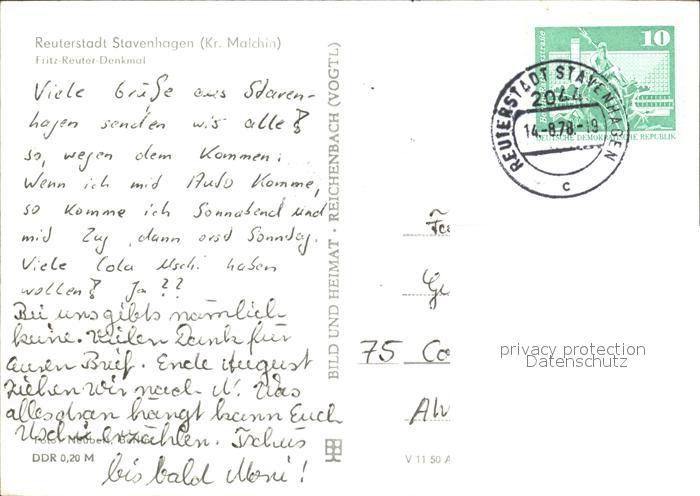 Reuterstadt Stavenhagen (Kr. Malchin)
Fritz-Reuter-Denkmal
Viele Grüße aus Staven-
hagen senden wir alle!
so, wegen dem Kommen:
Wenn ich mit Auto komme,
so komme ich Sonnabend und
mit Zug, dann erst Sonntag.
Viele Cola Uschi haben
wollen! Ja??
Bei uns gibts nämlich
keine. Vielen Dank für
euren Brief. Ende August
ziehen wir nach
alles dran hängt kann Euch
Uschi erzählen. Tschüs
bis bald Moni!
DDR 0,20 M
BILD UND HEIMAT · REICHENBACH (VOGTL)
V 11 50 A
10
DEUTSCHE DEMOKRATISCHE REPUBLIK
REUTERSTADT STAVENHAGEN
2044
14.-8.78.-19
c
75 Co
privacy protection
Datenschutz